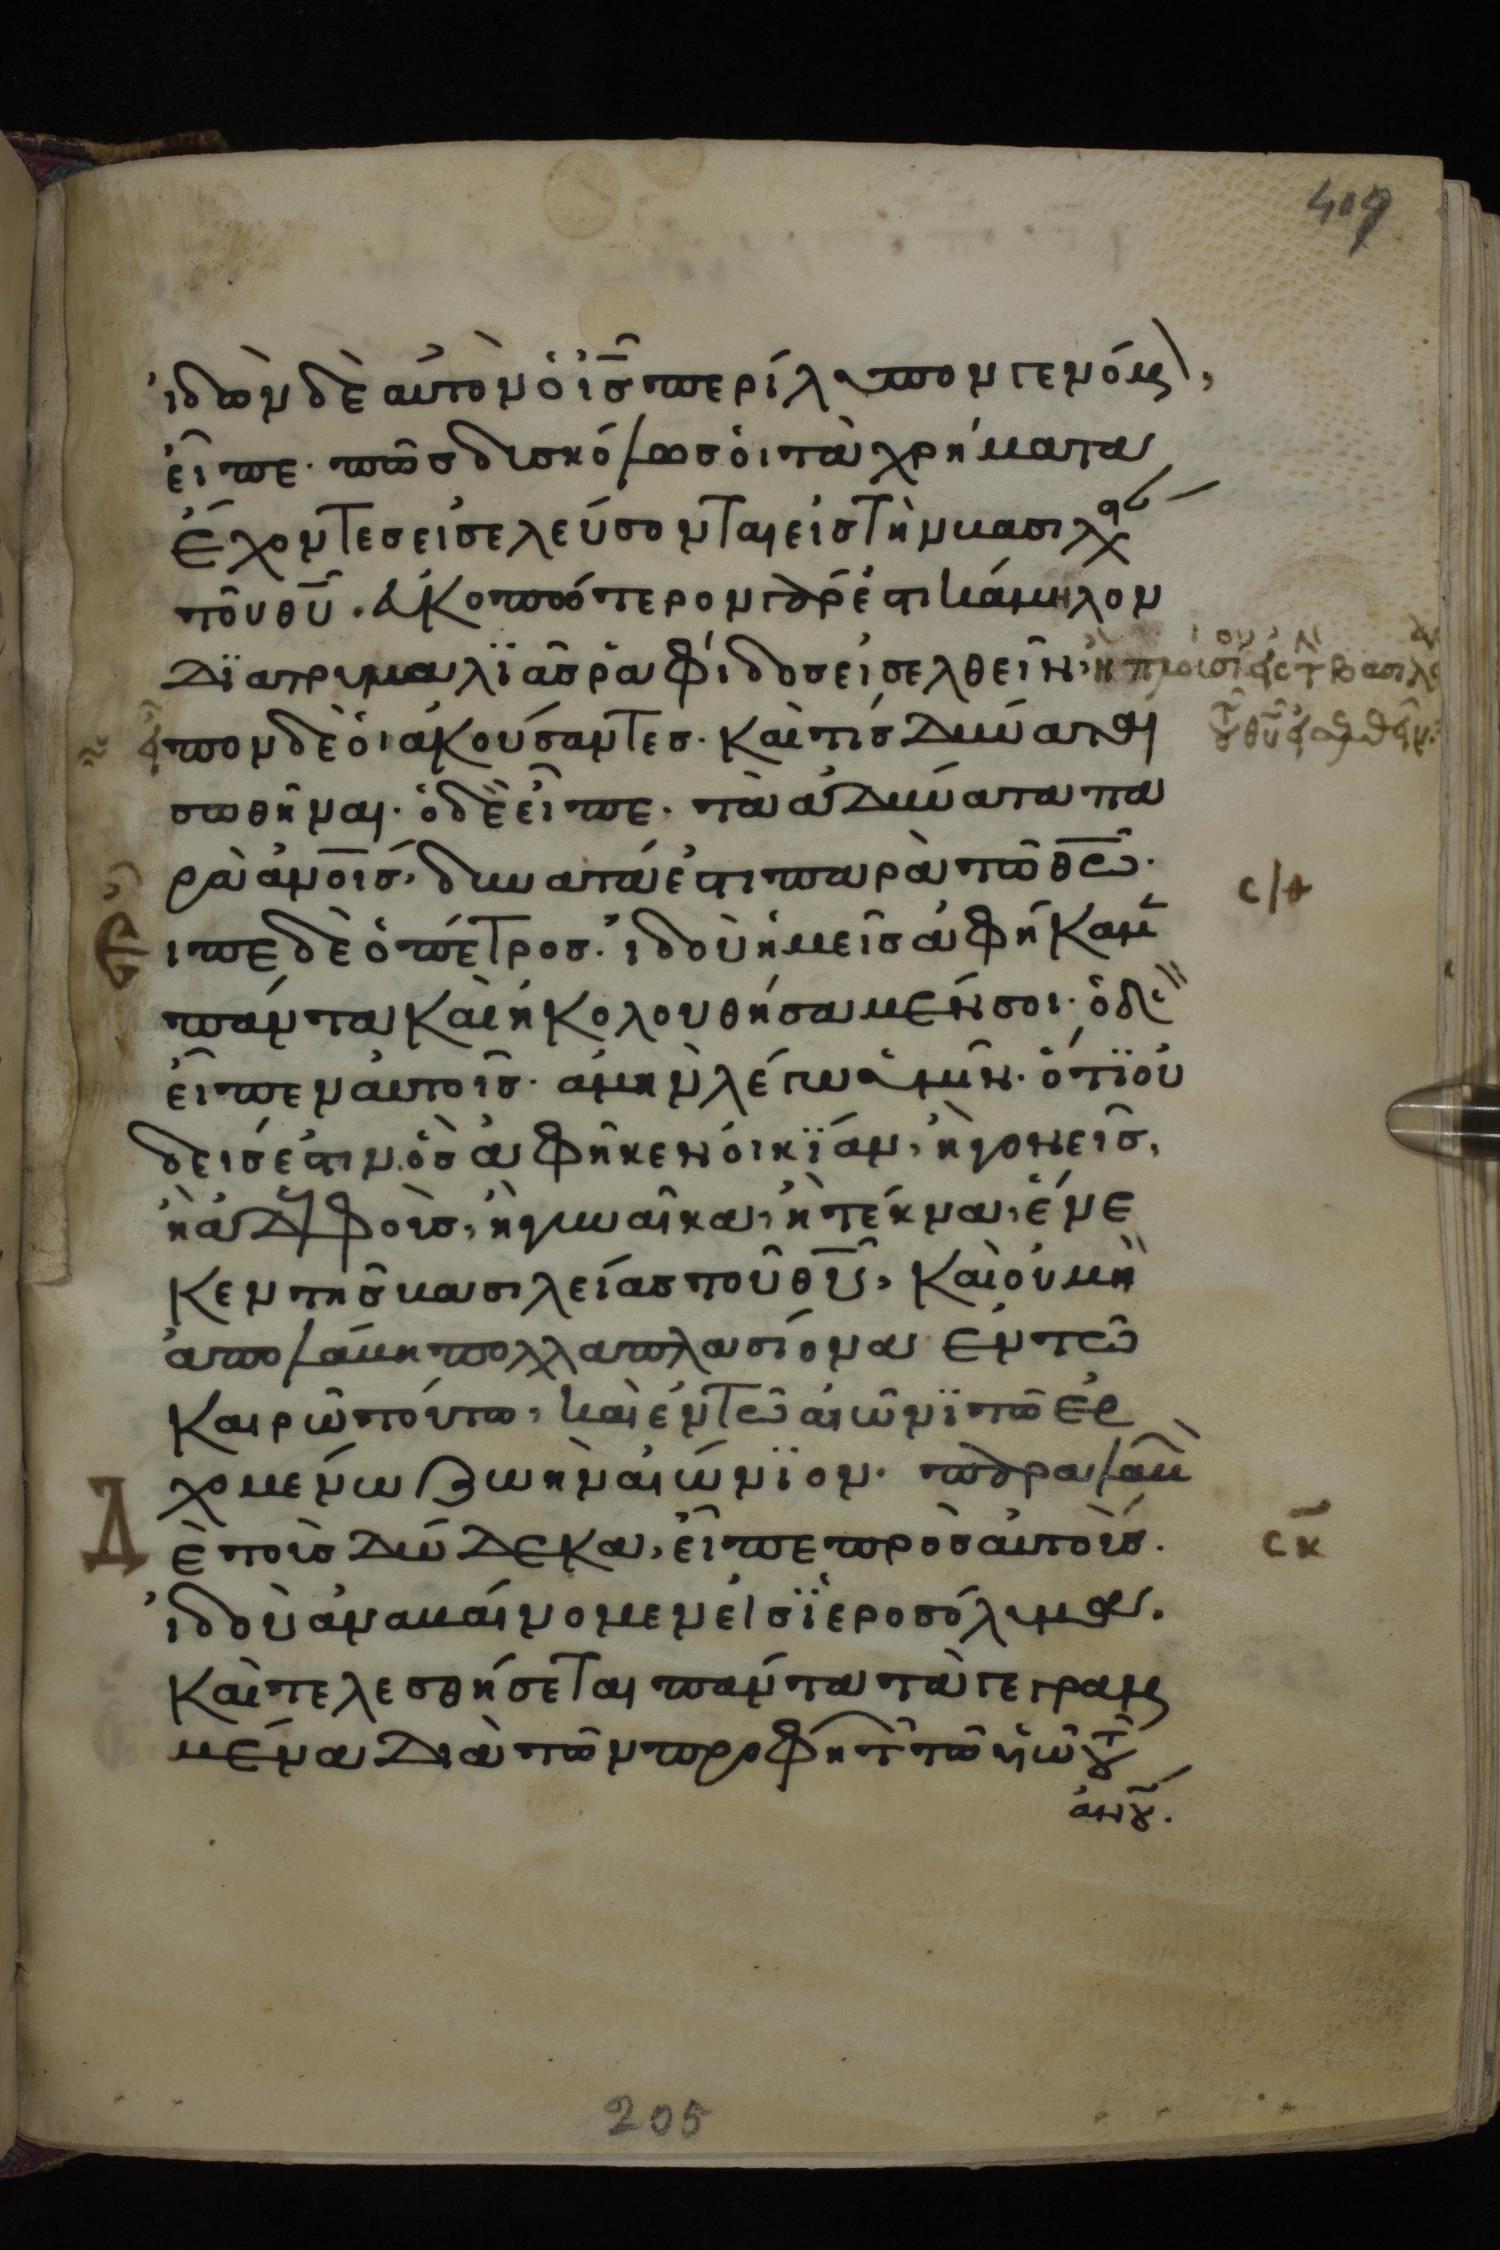 409
ἰδὼν δὲ αὐτὸν ὁ ἰ̅ς̅ περίλυπον γενόμε,
εἶπε· πῶς δυσκόλως ὁι τὰ χρήματα
ἔχοντες εἰσελεύσονται εἰς τὴν βασιλ
τοῦ θ̅υ̅. εὐκοπώτερον γάρ ἐστι κάμηλον
διὰ τρυμαλϊᾶς ῥαφίδος εἰσελθεῖν· ἢ πλούσι
πον δὲ ὁι ἀκούσαντες· καὶ τίς δύναται
σωθῆναι· ὁ δὲ εἶπε· τὰ ἀδύνατα πα
ρὰ ἀν̅ο̅ι̅ς̅, δυνατά ἐστι παρὰ τῶ θ̅ω̅·
Ειπε δὲ ὁ πέτρος· ἰδοὺ ἡμεῖς ἀφήκαμ
πάντα καὶ ἠκολουθήσαμέν σοι· ὁ δὲ
εἶπεν αὐτοῖς· ἀμὴν λέγω ὑμῖν· ὅτι οὐ
δείς ἐστιν ὃς ἀφῆκεν οἰκΐαν, ἢ γονεῖς,
ἢ ἀδελφοὺς, ἢ γυναῖκα, ἢ τέκνα, ἕνε
κεν τῆς βασιλείας τοῦ θ̅υ̅, καὶ οὐ μὴ
ἀπολάβη πολλαπλασίονα ἐν τῶ
καιρῶ τούτω, καὶ ἐν τῶ αἰῶνϊ τῶ ἐρ
χομένω ζωὴν αἰώνϊον· παραλαβ
Δὲ τοὺς δώδεκα, εἶπε πρὸς αὐτούς.
ἰδοὺ ἀναβαίνομεν εἰς ϊἑροσόλυμα.
καὶ τελεσθήσεται πάντα τὰ γεγραμ
μένα διὰ τῶν προφητ τῶ υἱῶ τοῦ
ἀν̅ου̅.
σιθ
σκ
205